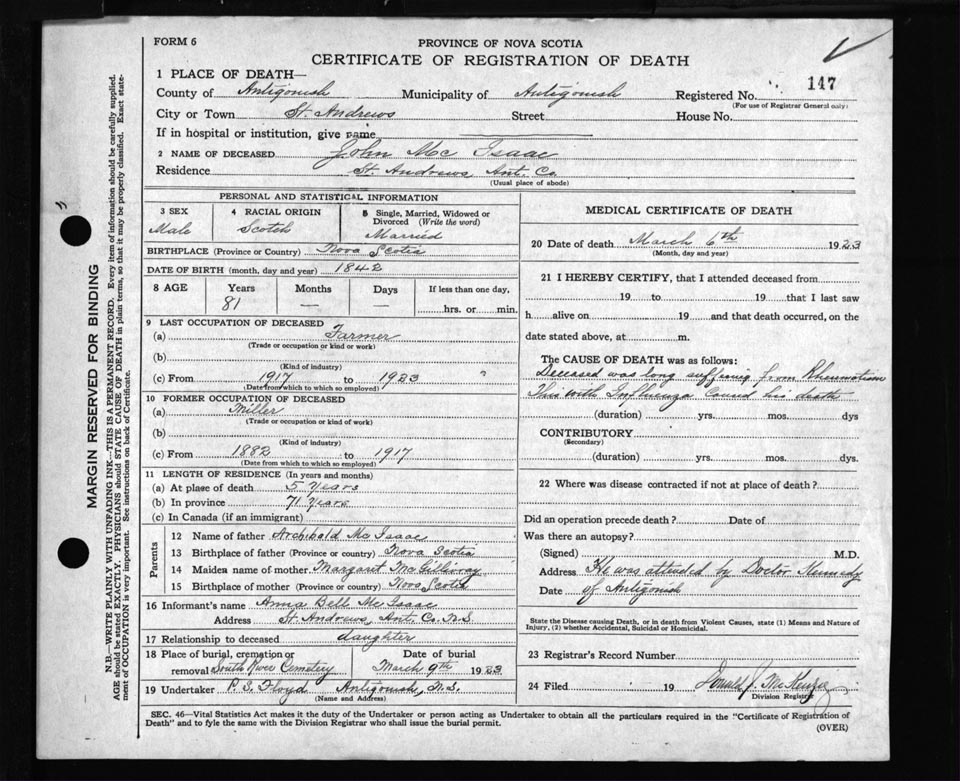 FORM 6
PROVINCE OF NOVA SCOTIA
CERTIFICATE OF REGISTRATION OF DEATH
147
1 PLACE OF DEATH—
County of Antigonish Municipality of Antigonish Registered No.
(For use of Registrar General only)
City or Town St. Andrews Street House No.
If in hospital or institution, give name
2 NAME OF DECEASED John Mc Isaac
Residence St. Andrews Ant. Co.
(Usual place of abode)
PERSONAL AND STATISTICAL INFORMATION
3 SEX
Male
4 RACIAL ORIGIN
Scotch
5 Single, Married, Widowed or
Divorced (Write the word)
Married
BIRTHPLACE (Province or Country) Nova Scotia
DATE OF BIRTH (month, day and year) 1842
8 AGE Years Months Days If less than one day,
81 — — hrs. or min.
9 LAST OCCUPATION OF DECEASED
(a) Farmer
(Trade or occupation or kind or work)
(b)
(Kind of industry)
(c) From 1917 to 1923
(Date from which to which so employed)
10 FORMER OCCUPATION OF DECEASED
(a) Miller
(Trade or occupation or kind of work)
(b)
(Kind of industry)
(c) From 1882 to 1917
(Date from which to which so employed)
11 LENGTH OF RESIDENCE (In years and months)
(a) At place of death 5 Years
(b) In province 71 Years
(c) In Canada (if an immigrant)
Parents
12 Name of father Archibald Mc Isaac
13 Birthplace of father (Province or country) Nova Scotia
14 Maiden name of mother Margaret McGillivray
15 Birthplace of Mother (Province or country) Nova Scotia
16 Informant's name Anna Bell Mc Isaac
Address St. Andrews, Ant. Co. N.S.
17 Relationship to deceased daughter
18 Place of burial, cremation or Date of burial
removal South River Cemetery March 9th 1923
19 Undertaker P. S. Floyd Antigonish, N.S.
(Name and Address)
MEDICAL CERTIFICATE OF DEATH
20 Date of death March 6th 1923
(Month, day and year)
21 I HEREBY CERTIFY, that I attended deceased from
19 to 19 that I last saw
h alive on 19 and that death occurred, on the
date stated above, at m.
The CAUSE OF DEATH was as follows:
Deceased was long suffering from Rheumatism
This with Influenza caused his death
(duration) yrs. mos. dys
CONTRIBUTORY
(Secondary)
(duration) yrs. mos. dys.
22 Where was disease contracted if not at place of death?
Did an operation precede death? Date of
Was there an autopsy?
(Signed) M.D.
Address He was attended by Doctor Kennedy
Date of Antigonish
State the Disease causing Death, or in death from Violent Causes, state (1) Means and Nature of
Injury, (2) whether Accidental, Suicidal or Homicidal.
23 Registrar's Record Number
24 Filed 19 McKenzie
Division Registrar
SEC. 46—Vital Statistics Act makes it the duty of the Undertaker or person acting as Undertaker to obtain all the particulars required in the "Certificate of Registration of
Death" and to fyle the same with the Division Registrar who shall issue the burial permit.
(OVER)
MARGIN RESERVED FOR BINDING
N.B.—WRITE PLAINLY WITH UNFADING INK—THIS IS A PERMANENT RECORD. Every item of information should be carefully supplied.
AGE should be stated EXACTLY. PHYSICIANS should STATE CAUSE OF DEATH in plain terms, so that it may be properly classified. Exact state-
ment of OCCUPATION is very important. See instructions on back of Certificate.